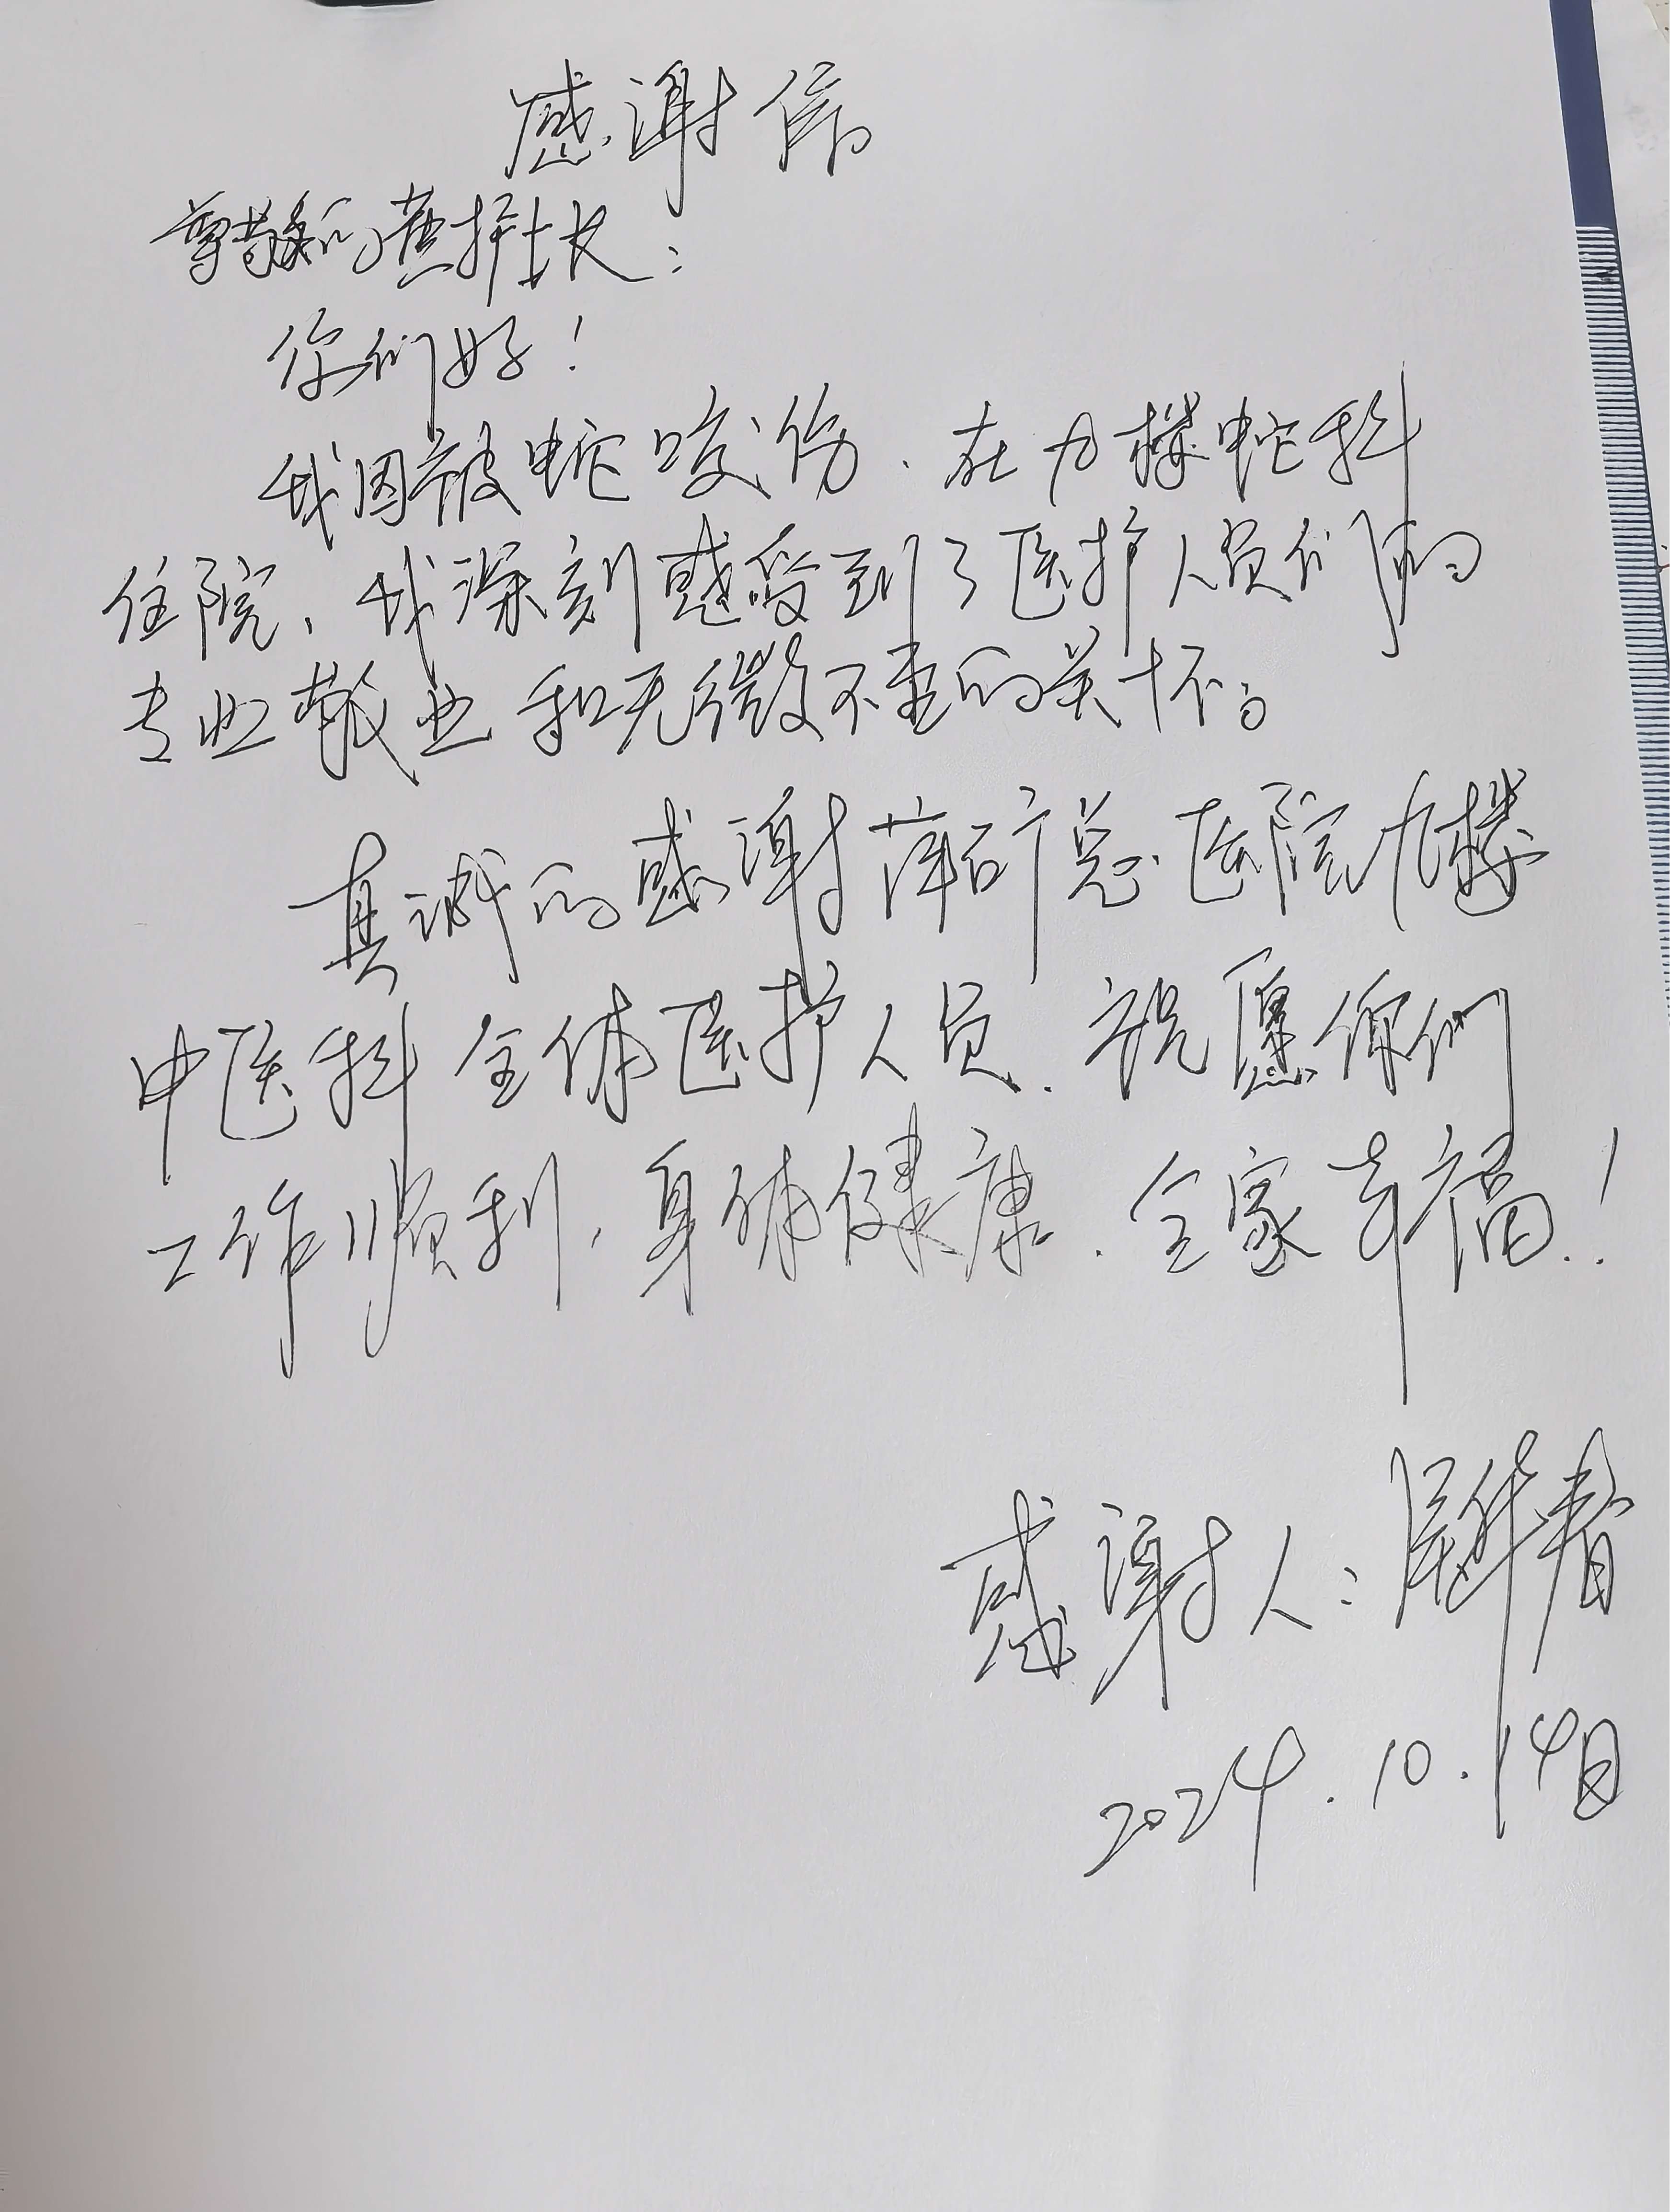 感谢信
尊敬的黄护士长：
你们好！
我因被蛇咬伤．在九楼蛇科
住院、我深刻感受到了医护人员们的
专业敬业和无微不至的关怀。
真诚的感谢萍矿总医院九楼
中医科全体医护人员．祝愿你们
工作顺利，身体健康．全家幸福！
感谢人：
2024．10．14日